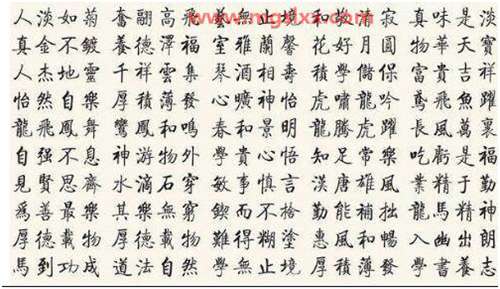 www.mgdxs.com
人淡如菊 奮翮高飛 藝無止境 和敬清寂 真味是淡
真金不鍍 養德澤福 室雅蘭馨 花好月圓 物華天寶
人杰地靈 千祥雲集 琴酒相壽 積學儲保 富貴吉祥
怡然自樂 厚積薄發 心曠神怡 虎嘯龍吟 鳶飛魚躍
龍飛鳳舞 鸞鳳和鳴 春和景明 龍騰虎躍 長風萬裏
自强不息 神游物外 學貴心悟 知足常樂 吃虧是福
見賢思齊 水滴石穿 敏事慎言 漢唐雄風 業精于勤
爲善最樂 其樂無窮 鍥而不捨 勤能補拙 龍馬精神
厚德載物 厚德載物 難得糊塗 惠風和暢 入幽出朗
馬到功成 道法自然 學無止境 厚積薄發 學書養志